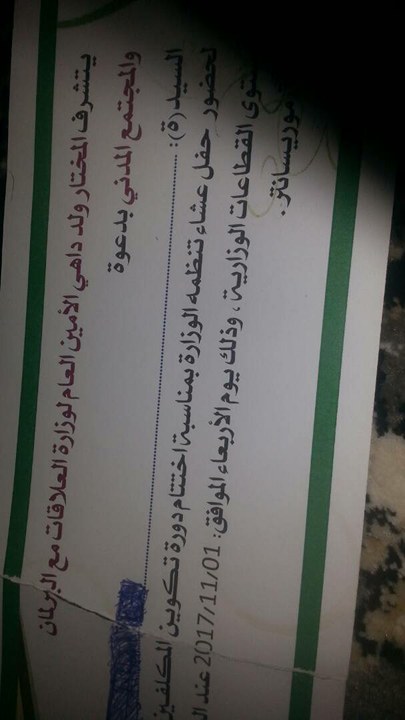 يتشرف المختار ولد داهي الأمين العام لوزارة العلاقات مع البرلمان
والمجتمع المدني بدعوة
السيد(ة): ........................................
لحضور حفل عشاء تنظمه الوزارة بمناسبة اختتام دورة تكوين المكلفين
توى القطاعات الوزارية، وذلك يوم الأربعاء الموافق: 2017/11/01 عند ال
موريسانتر.